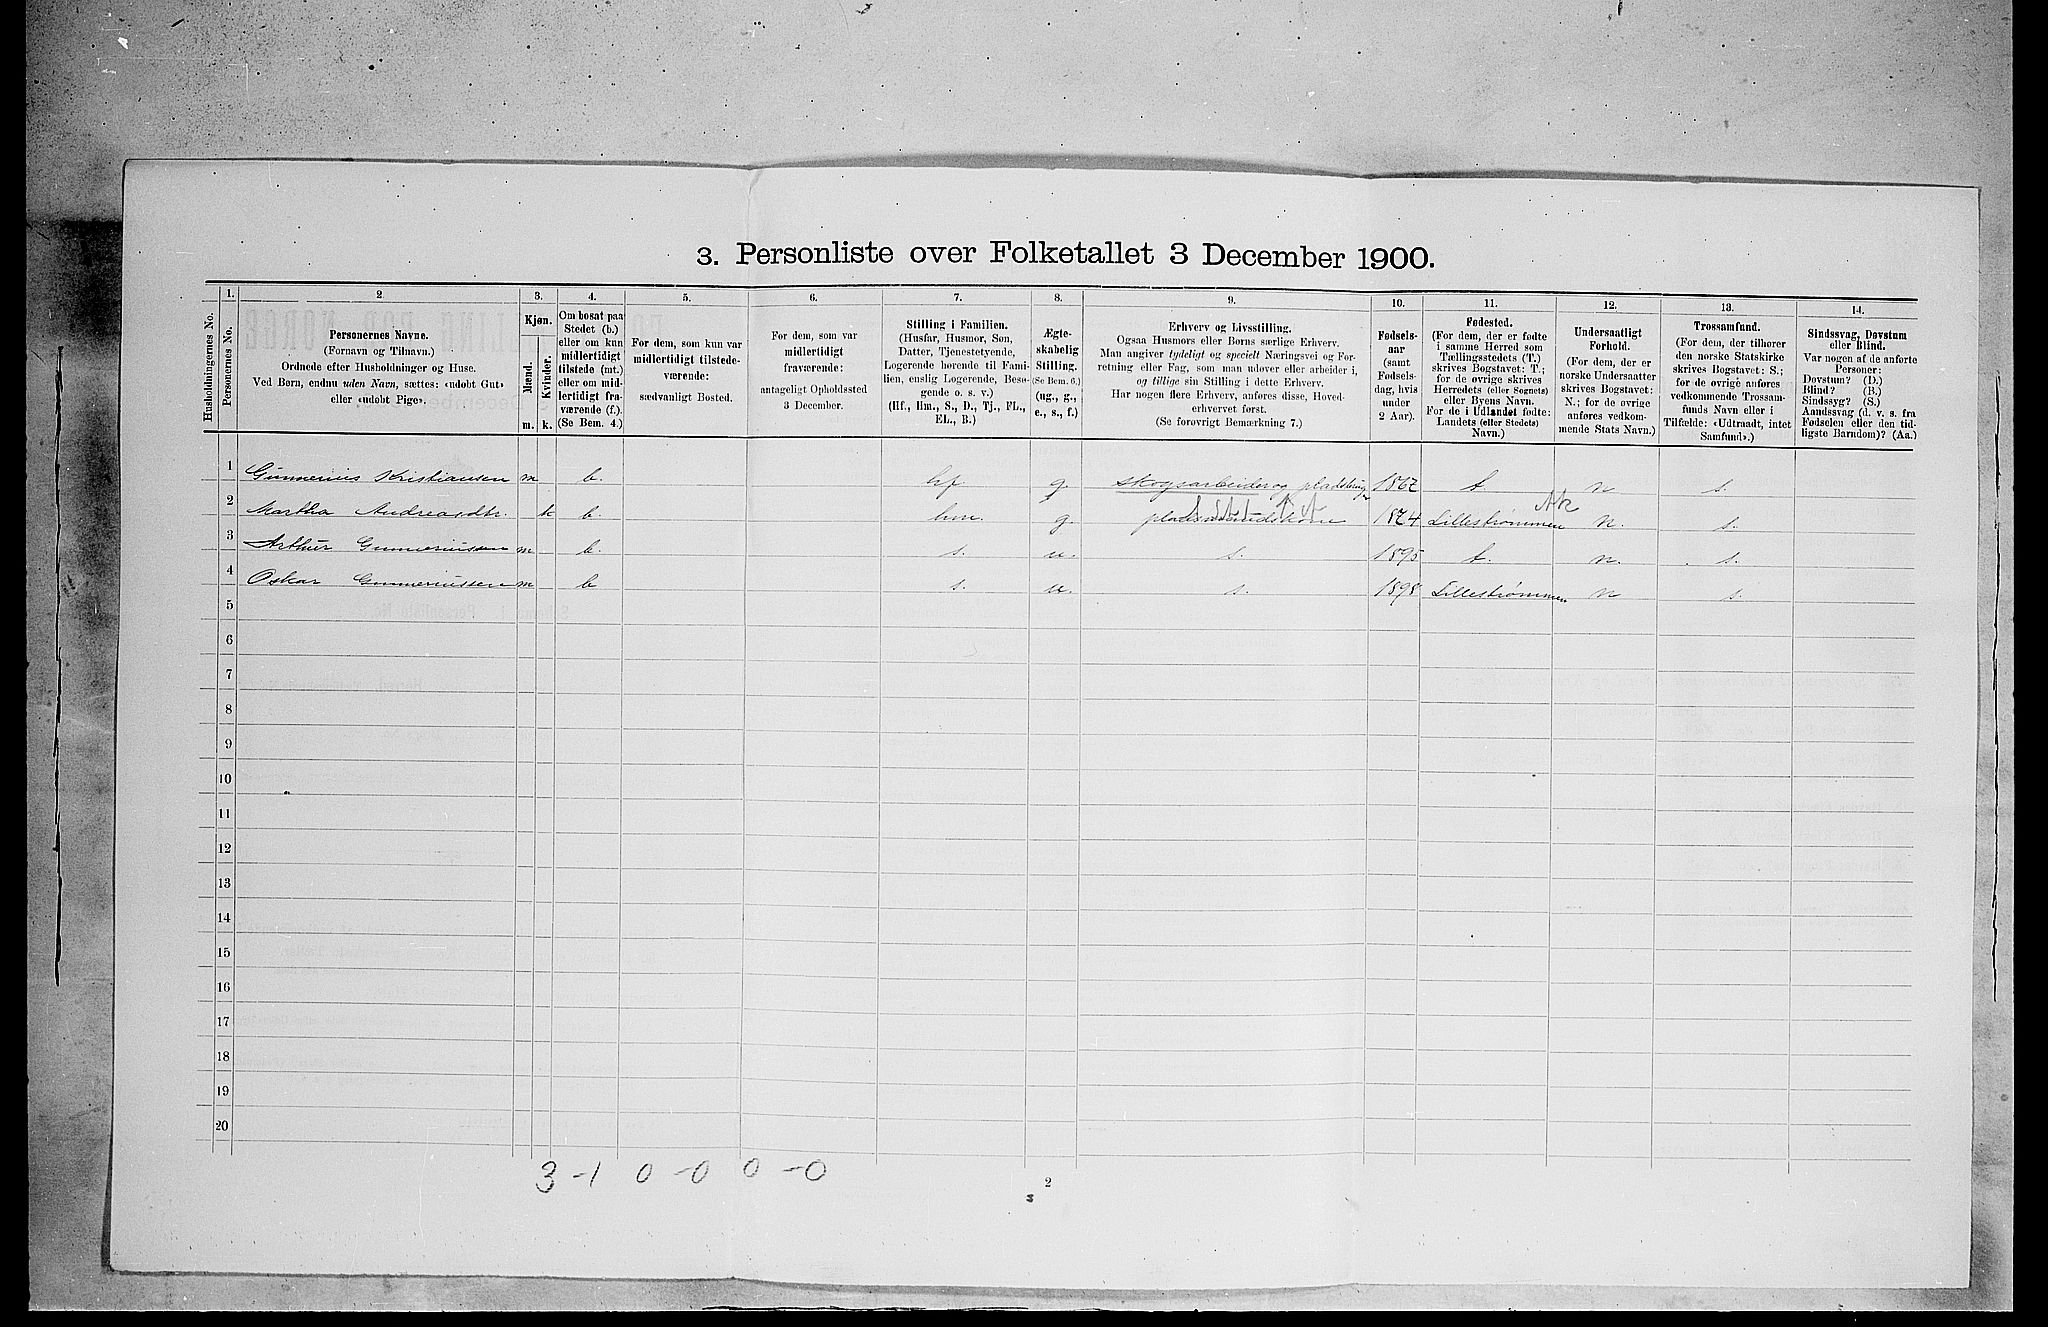 3. Personliste over Folketallet 3 December 1900.
1. 2. 3. 4. 5. 6. 7. 8. 9. 10. 11. 12. 13. 14.
Husholdningernes No.
Personernes No.
Personernes Navne.
(Fornavn og Tilnavn.)
Ordnede efter Husholdninger og Huse.
Ved Børn, endnu uden Navn, sættes: «udøbt Gut»
eller «udøbt Pige».
Kjøn.
Mænd.
Kvinder.
m. k.
Om bosat paa
Stedet (b.)
eller om kun
midlertidigt
tilstede (mt.)
eller om mid-
lertidigt fra-
værende (f.).
(Se Bem. 4.)
For dem, som kun var
midlertidigt tilstede-
værende:
sædvanligt Bosted.
For dem, som var
midlertidigt
fraværende:
antageligt Opholdssted
3 December.
Stilling i Familien.
(Husfar, Husmor, Søn,
Datter, Tjenestetyende,
Logerende hørende til Fami-
lien, enslig Logerende, Besø-
gende o. s. v.)
(Hf., Hm., S., D., Tj., FL.,
EL., B.)
Ægte-
skabelig
Stilling.
(Se Bem. 6.)
(ug., g.,
e., s., f.)
Erhverv og Livsstilling.
Ogsaa Husmors eller Børns særlige Erhverv.
Man angiver tydeligt og specielt Næringsvei og For-
retning eller Fag, som man udøver eller arbeider i,
og tillige sin Stilling i dette Erhverv.
Har nogen flere Erhverv, anføres disse, Hoved-
erhvervet først.
(Se forøvrigt Bemærkning 7.)
Fødsels-
aar
(samt
Fødsels-
dag, hvis
under
2 Aar).
Fødested.
(For dem, der er fødte
i samme Herred som
Tællingsstedets (T.)
skrives Bogstavet: T.;
for de øvrige skrives
Herredets (eller Sognets)
eller Byens Navn.
For de i Udlandet fødte:
Landets (eller Stedets)
Navn.)
Undersaatligt
Forhold.
(For dem, der er
norske Undersaatter
skrives Bogstavet:
N.; for de øvrige
anføres vedkom-
mende Stats Navn.)
Trossamfund.
(For dem, der tilhører
den norske Statskirke
skrives Bogstavet: S.;
for de øvrige anføres
vedkommende Trossam-
funds Navn eller i
Tilfælde: «Udtraadt, intet
Samfund».)
Sindssvag, Døvstum
eller Blind.
Var nogen af de anførte
Personer:
Døvstum? (D.)
Blind? (B.)
Sindssyg? (S.)
Aandssvag (d. v. s. fra
Fødselen eller den tid-
ligste Barndom)? (Aa.)
1 Gunnerius Kristiansen m b. hf. g. skogsarbeider og 1867 t. n s.
Ak
2 Martha Andreasdtr. k b. hm. g. 1874 Lillestrømmen n. s.
3 Arthur Gunneriussen m b. s. u. s. 1895 t. n. s.
4 Oskar Gunneriussen m b s. u. s. 1898 Lillestrømmen n s.
5
6
7
8
9
10
11
12
13
14
15
16
17
18
19
20
3 -1 0 -0 0 -0
2